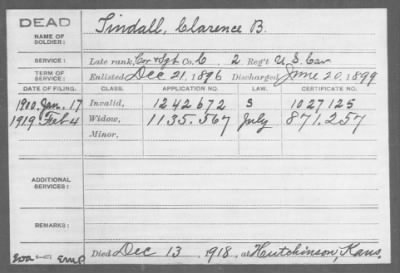 DEAD
NAME OF SOLDIER: Tindall, Clarence B.
SERVICE: Late rank, Cor & Sgt Co. C 2 Reg't U.S. Cav
TERM OF SERVICE: Enlisted Dec 21, 1896 Discharged June 20, 1899
DATE OF FILING. CLASS. APPLICATION NO. LAW. CERTIFICATE NO.
1900. Jan. 17 Invalid, 1242672 S 1027125
1919. Feb 4 Widow, 1135.567 July 871.257
Minor,
ADDITIONAL SERVICES:
REMARKS:
Died Dec 13, 1918, at Hutchinson, Kans.